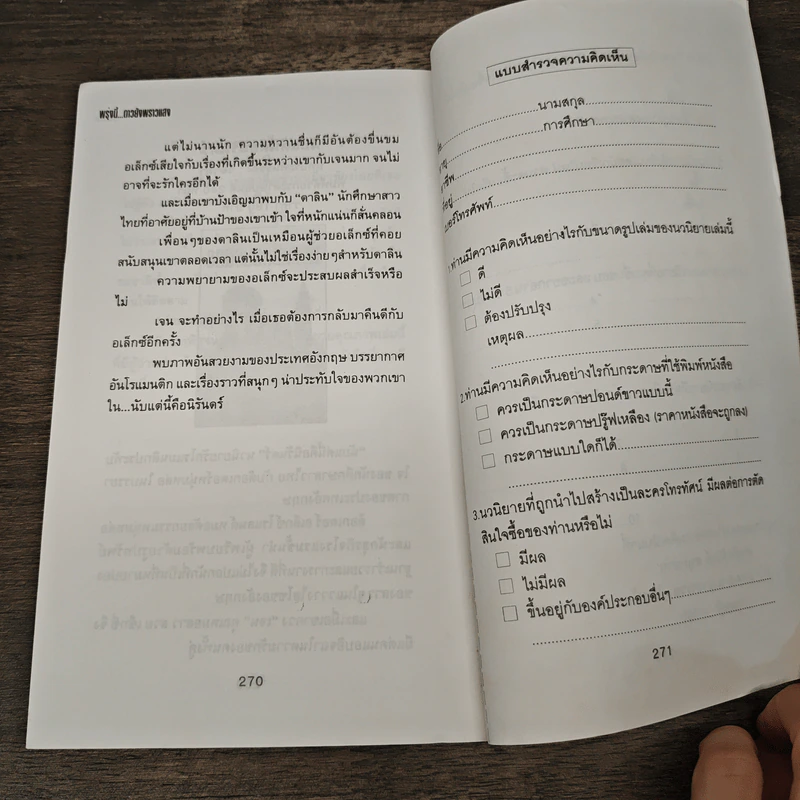 พรุ่งนี้...ดาวยังพราวแสง
แต่ไม่นานนัก ความหวานชื่นก็มีอันต้องขื่นขม
อเล็กซ์เสียใจกับเรื่องที่เกิดขึ้นระหว่างเขากับเจนมาก จนไม่
อาจที่จะรักใครอีกได้
และเมื่อเขาบังเอิญมาพบกับ “ดาลิน” นักศึกษาสาว
ไทยที่อาศัยอยู่ที่บ้านป้าของเขาเข้า ใจที่หนักแน่นก็สั่นคลอน
เพื่อนๆของดาลินเป็นเหมือนผู้ช่วยอเล็กซ์ที่คอย
สนับสนุนเขาตลอดเวลา แต่นั้นไม่ใช่เรื่องง่ายๆสำหรับดาลิน
ความพยายามของอเล็กซ์จะประสบผลสำเร็จหรือ
ไม่
เจน จะทำอย่างไร เมื่อเธอต้องการกลับมาคืนดีกับ
อเล็กซ์อีกครั้ง
พบภาพอันสวยงามของประเทศอังกฤษ บรรยากาศ
อันโรแมนติก และเรื่องราวที่สนุกๆ น่าประทับใจของพวกเขา
ใน...นับแต่นี้คือนิรันดร์
270
แบบสำรวจความคิดเห็น
นามสกุล
การศึกษา
ท่านมีความคิดเห็นอย่างไรกับขนาดรูปเล่มของนวนิยายเล่มนี้
ดี
ไม่ดี
ต้องปรับปรุง
เหตุผล
2.ท่านมีความคิดเห็นอย่างไรกับกระดาษที่ใช้พิมพ์หนังสือ
ควรเป็นกระดาษปอนด์ขาวแบบนี้
ควรเป็นกระดาษปรู๊ฟเหลือง (ราคาหนังสือจะถูกลง)
กระดาษแบบใดก็ได้
3.นวนิยายที่ถูกนำไปสร้างเป็นละครโทรทัศน์ มีผลต่อการตัด
สินใจซื้อของท่านหรือไม่
มีผล
ไม่มีผล
ขึ้นอยู่กับองค์ประกอบอื่นๆ
271